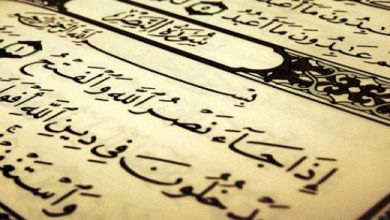 مَآ أَعْبُدُ
عَٰبِدُونَ مَآ أَعْبُدُ
سُورَةُ النَّصْرِ
بِسْ
إِذَا جَآءَ نَصْرُ اللَّهِ وَالْفَتْحُ ١
دْخُلُونَ فِي دِينِ اللَّهِ أَفْوَا
وَاسْتَغْفِ